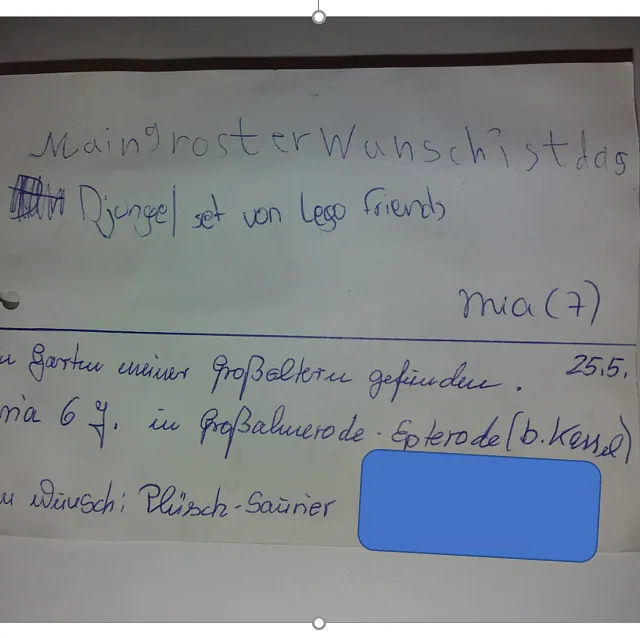 MaingrosterWunschistdas
Djungel set von Lego friends
Mia (7)
Garten meiner Großeltern gefunden. 25.5.
6 J. in Großalmerode-Epterode (b. Kassel)
Wunsch: Plüsch-Saurier